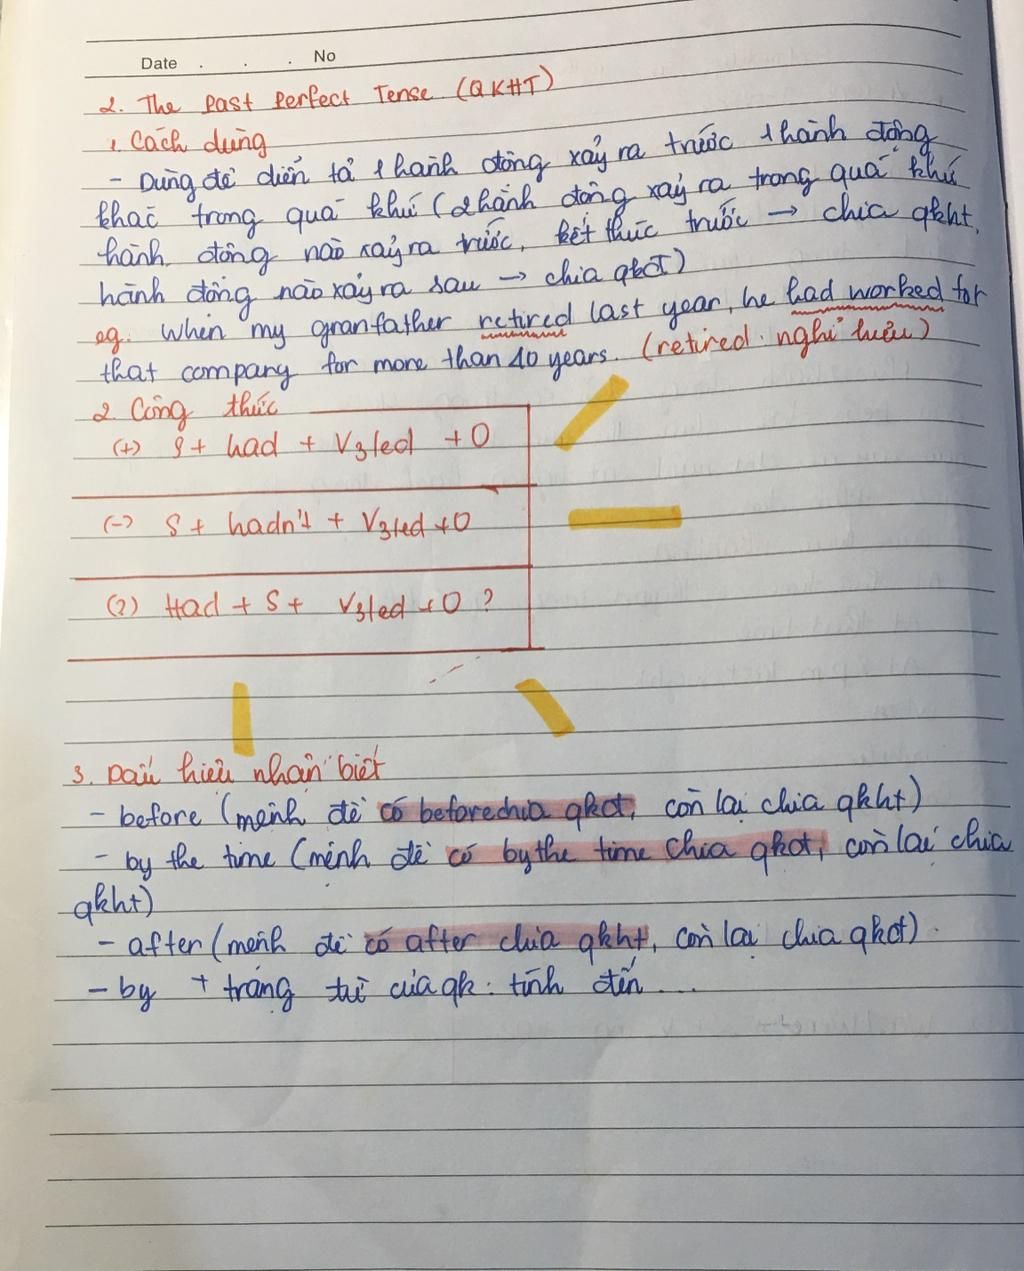 Date . . . No
2. The Past Perfect Tense (QKHT)
1. Cách dùng
- Dùng để diễn tả 1 hành động xảy ra trước 1 hành động
khác trong quá khứ (2 hành động xảy ra trong quá khứ
hành động nào xảy ra trước, kết thúc trước → chia qkht,
hành động nào xảy ra sau → chia qkđ)
eg. When my granfather retired last year, he had worked for
that company for more than 40 years. (retired: nghỉ hưu)
2. Công thức
(+) S + had + V3/ed + O
(-) S + hadn't + V3/ed + O
(?) Had + S + V3/ed + O ?
3. Dấu hiệu nhận biết
- before (mệnh đề có before chia qkđ, còn lại chia qkht)
- by the time (mệnh đề có by the time chia qkđ, còn lại chia
qkht)
- after (mệnh đề có after chia qkht, còn lại chia qkđ).
- by + trạng từ của qk: tính đến ...